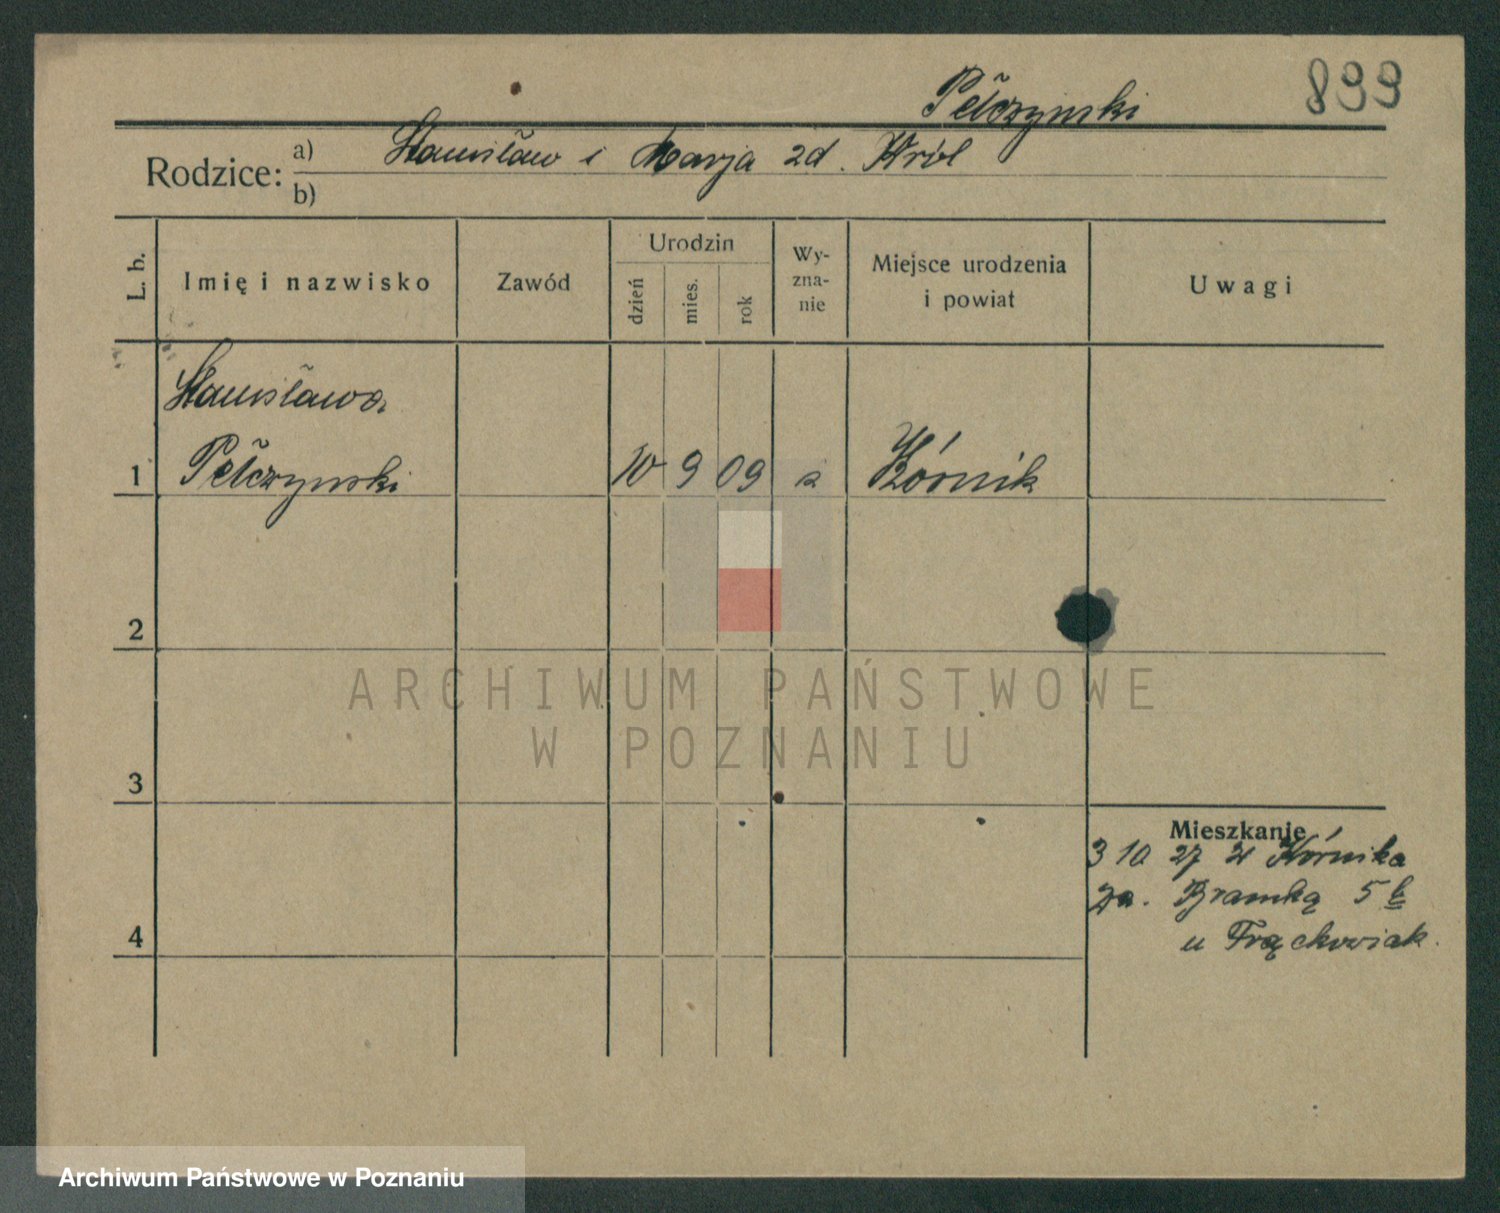 Pełczyński
899
Rodzice:
a) Stanisław i Marja zd. Król
b)
L. b.
Imię i nazwisko
Zawód
Urodzin
dzień
mies.
rok
Wy-
zna-
nie
Miejsce urodzenia
i powiat
Uwagi
Stanisława
1 Pełczynski 10 9 09 Kórnik
2
3
4
Mieszkanie
3 10 27 z Kórnika
Za. Bramką 5 b
u Frąckowiak.
ARCHIWUM PAŃSTWOWE
W POZNANIU
Archiwum Państwowe w Poznaniu